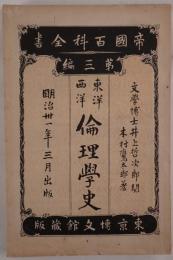 帝國百科全書
第三編
文學博士井上哲次郎閲
木村鷹太郎著
東洋
西洋
倫理學史
明治卅一年三月出版
東京博文館藏版